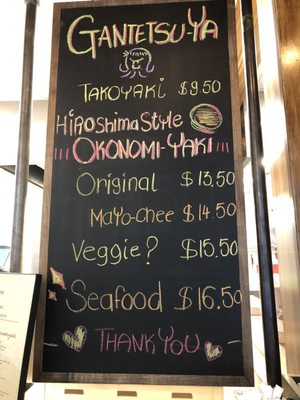 GANTETSU-YA
TAKOYAKI $9.50
HIROSHIMA STYLE
OKONOMI-YAKI
Original $13.50
MAYO-CHEE $14.50
Veggie? $15.50
Seafood $16.50
THANK YOU